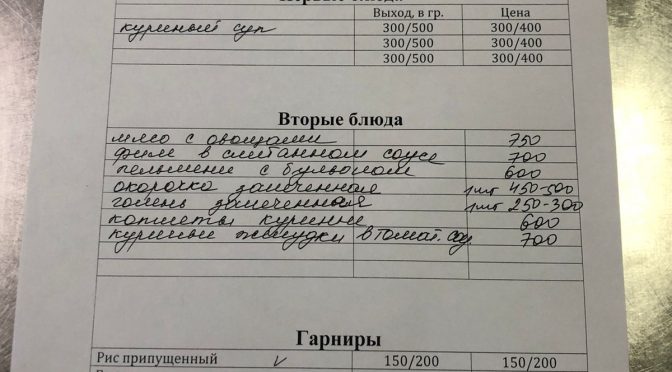 Первые блюда
Выход, в гр. Цена
куриный суп 300/500 300/400
300/500 300/400
300/500 300/400
Вторые блюда
мясо с овощами 750
филе в сметанном соусе 700
пельмени с бульоном 600
окорочка запеченная 1шт 450-500
голень запеченная 1шт 250-300
котлеты куриные 600
куриные желудки в томат. соу 700
Гарниры
Рис припущенный V 150/200 150/200